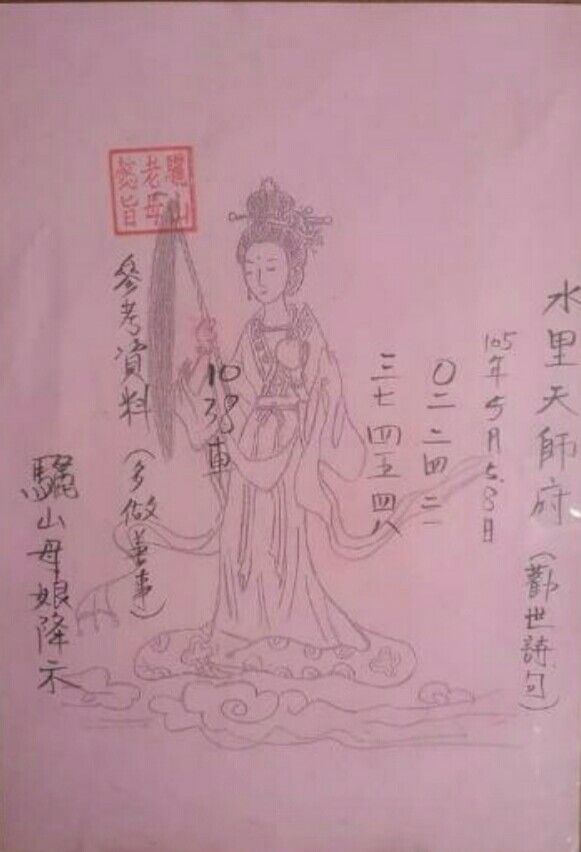 水里天師府(勸世詩句)
105年5月5.8日
〇二二四二一
三七四五四八
10
39車
參考資料(多做善事)
驪山母娘降示
驪山
老母
懿旨